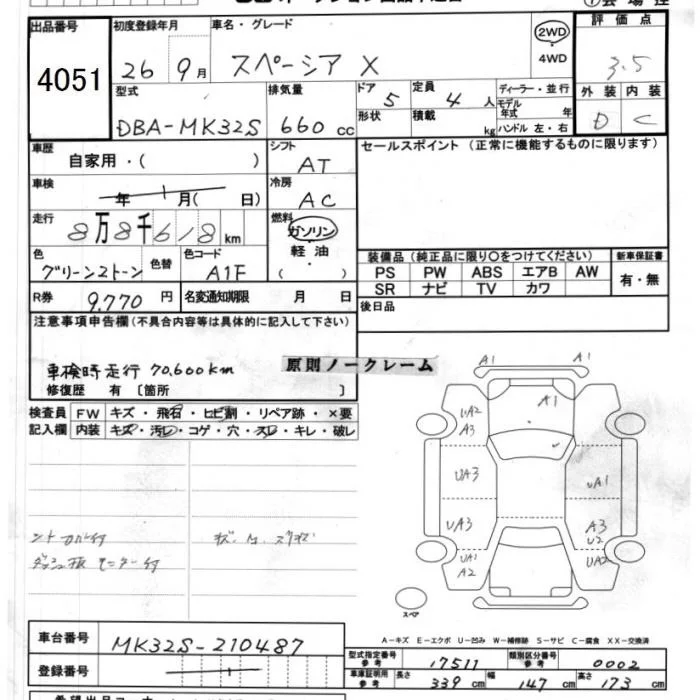 出品番号 初度登録年月 車名・グレード 評価点
4051 26 9月 スペーシア X 2WD 4WD 3.5
型式 排気量 ドア 定員 ディーラー・並行 外装 内装
DBA-MK32S 660 cc 5 4人 モデル年式 年 D C
形状 積載 kg ハンドル 左・右
車歴 自家用・( ) シフト AT セールスポイント(正常に機能するものに限ります)
車検 年 月( 日) 冷房 AC
走行 8万8千618 km 燃料 ガソリン 軽油 ( )
色 グリーン2トーン 色替 色コード A1F
装備品(純正品に限り○をつけてください) 新車保証書
PS PW ABS エアB AW 有・無
SR ナビ TV カワ
R券 9,770 円 名変通知期限 月 日 後日品
注意事項申告欄(不具合内容等は具体的に記入して下さい)
車検時走行 70,600km 原則ノークレーム
修復歴 有 [箇所 ]
検査員 FW キズ・飛石・ヒビ割・リペア跡・×要
記入欄 内装 キズ・汚レ・コゲ・穴・スレ・キレ・破レ
A1 A1
A1
UA2
A3
UA3 UA3
UA3 A3
U2
UA1 UA2
A2
スペア
A-キズ E-エクボ U-凹み W-補修跡 S-サビ C-腐食 XX-交換済
車台番号 MK32S-210487
型式指定番号 参考 17511 類別区分番号 参考 0002
登録番号
車庫証明用 参考 長さ 339 cm 幅 147 cm 高さ 173 cm